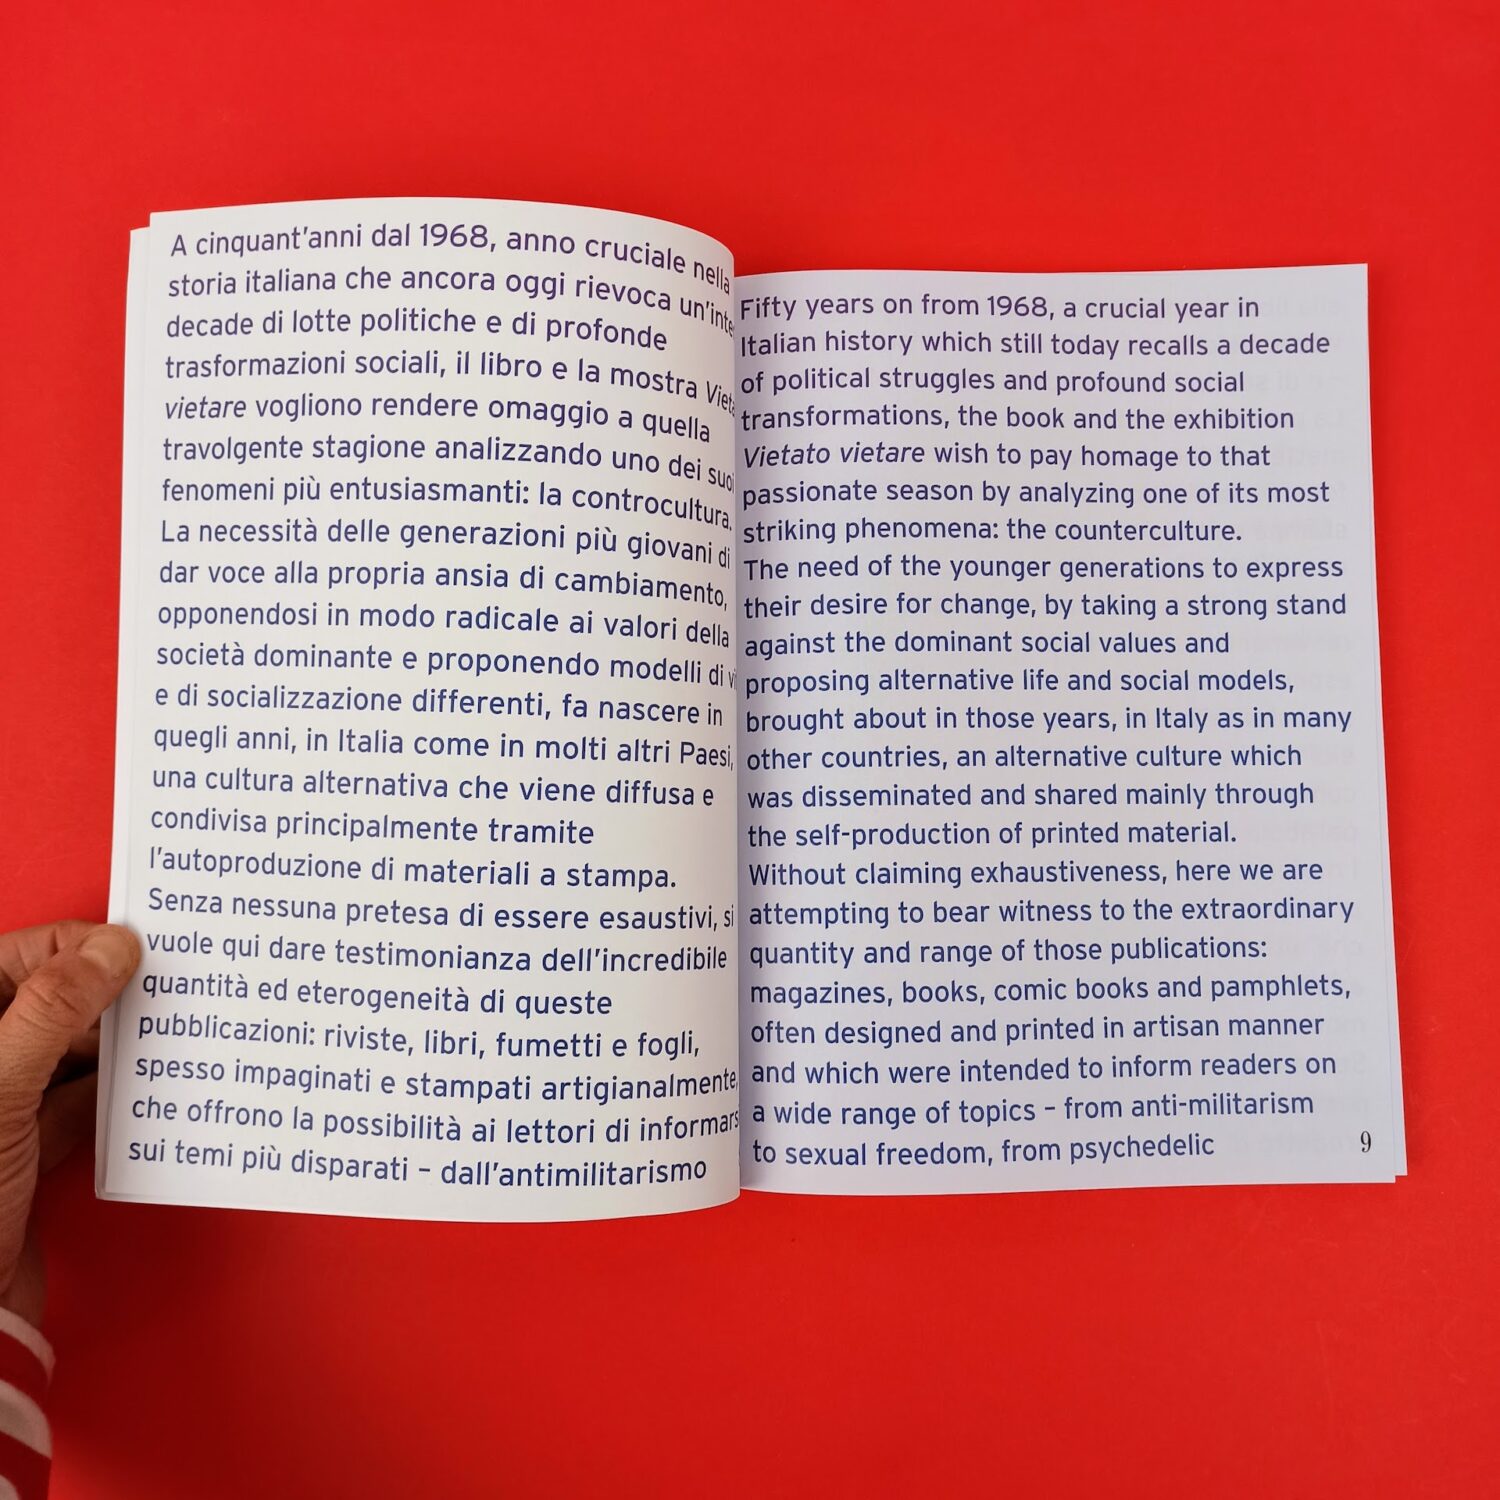 A cinquant'anni dal 1968, anno cruciale nella
storia italiana che ancora oggi rievoca
decade di lotte politiche e di profonde
trasformazioni sociali, il libro e la mostra
vietare vogliono rendere omaggio a quella
travolgente stagione analizzando uno dei suoi
fenomeni più entusiasmanti: la controcultura.
La necessità delle generazioni più giovani di
dar voce alla propria ansia di cambiamento,
opponendosi in modo radicale ai valori della
società dominante e proponendo modelli di
e di socializzazione differenti, fa nascere in
quegli anni, in Italia come in molti altri Paesi,
una cultura alternativa che viene diffusa e
condivisa principalmente tramite
l'autoproduzione di materiali a stampa.
Senza nessuna pretesa di essere esaustivi, si
vuole qui dare testimonianza dell'incredibile
quantità ed eterogeneità di queste
pubblicazioni: riviste, libri, fumetti e fogli,
spesso impaginati e stampati artigianalmente,
che offrono la possibilità ai lettori di
sui temi più disparati – dall'antimilitarismo
Fifty years on from 1968, a crucial year in
Italian history which still today recalls a decade
of political struggles and profound social
transformations, the book and the exhibition
Vietato vietare wish to pay homage to that
passionate season by analyzing one of its most
striking phenomena: the counterculture.
The need of the younger generations to express
their desire for change, by taking a strong stand
against the dominant social values and
proposing alternative life and social models,
brought about in those years, in Italy as in many
other countries, an alternative culture which
was disseminated and shared mainly through
the self-production of printed material.
Without claiming exhaustiveness, here we are
attempting to bear witness to the extraordinary
quantity and range of those publications:
magazines, books, comic books and pamphlets,
often designed and printed in artisan manner
and which were intended to inform readers on
a wide range of topics – from anti-militarism
to sexual freedom, from psychedelic
9